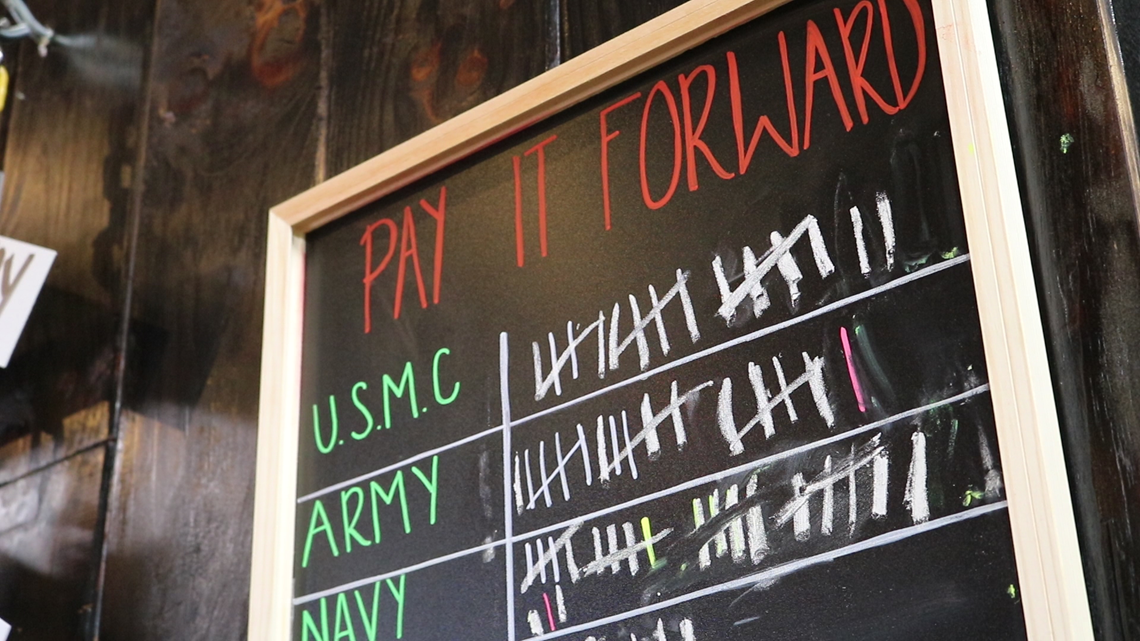 PAY IT FORWARD
U.S.M.C
ARMY
NAVY